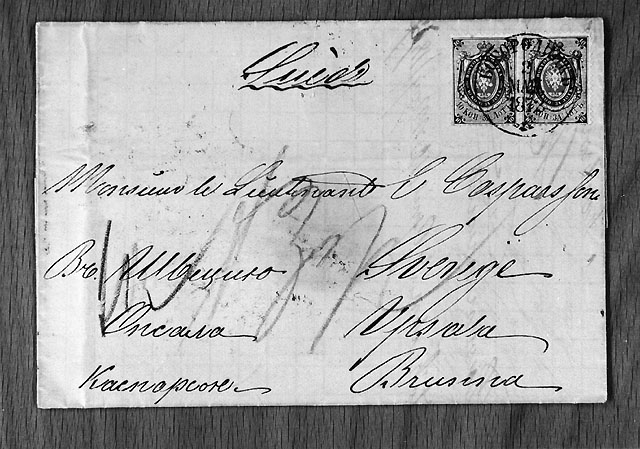 Suède
Monsieur le Lieutenant C Casparsson
Въ Швецию Sverige
Упсала Upsala
Каспарсон Brunna